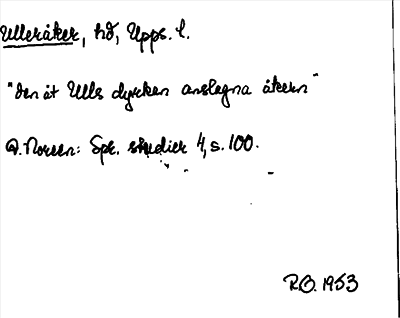 Ulleråker, hd, Upps. l.
"den åt Ulls dyrkan anslagna åkern"
A. Noreen: Spr. studier 4, s. 100.
R.O. 1953